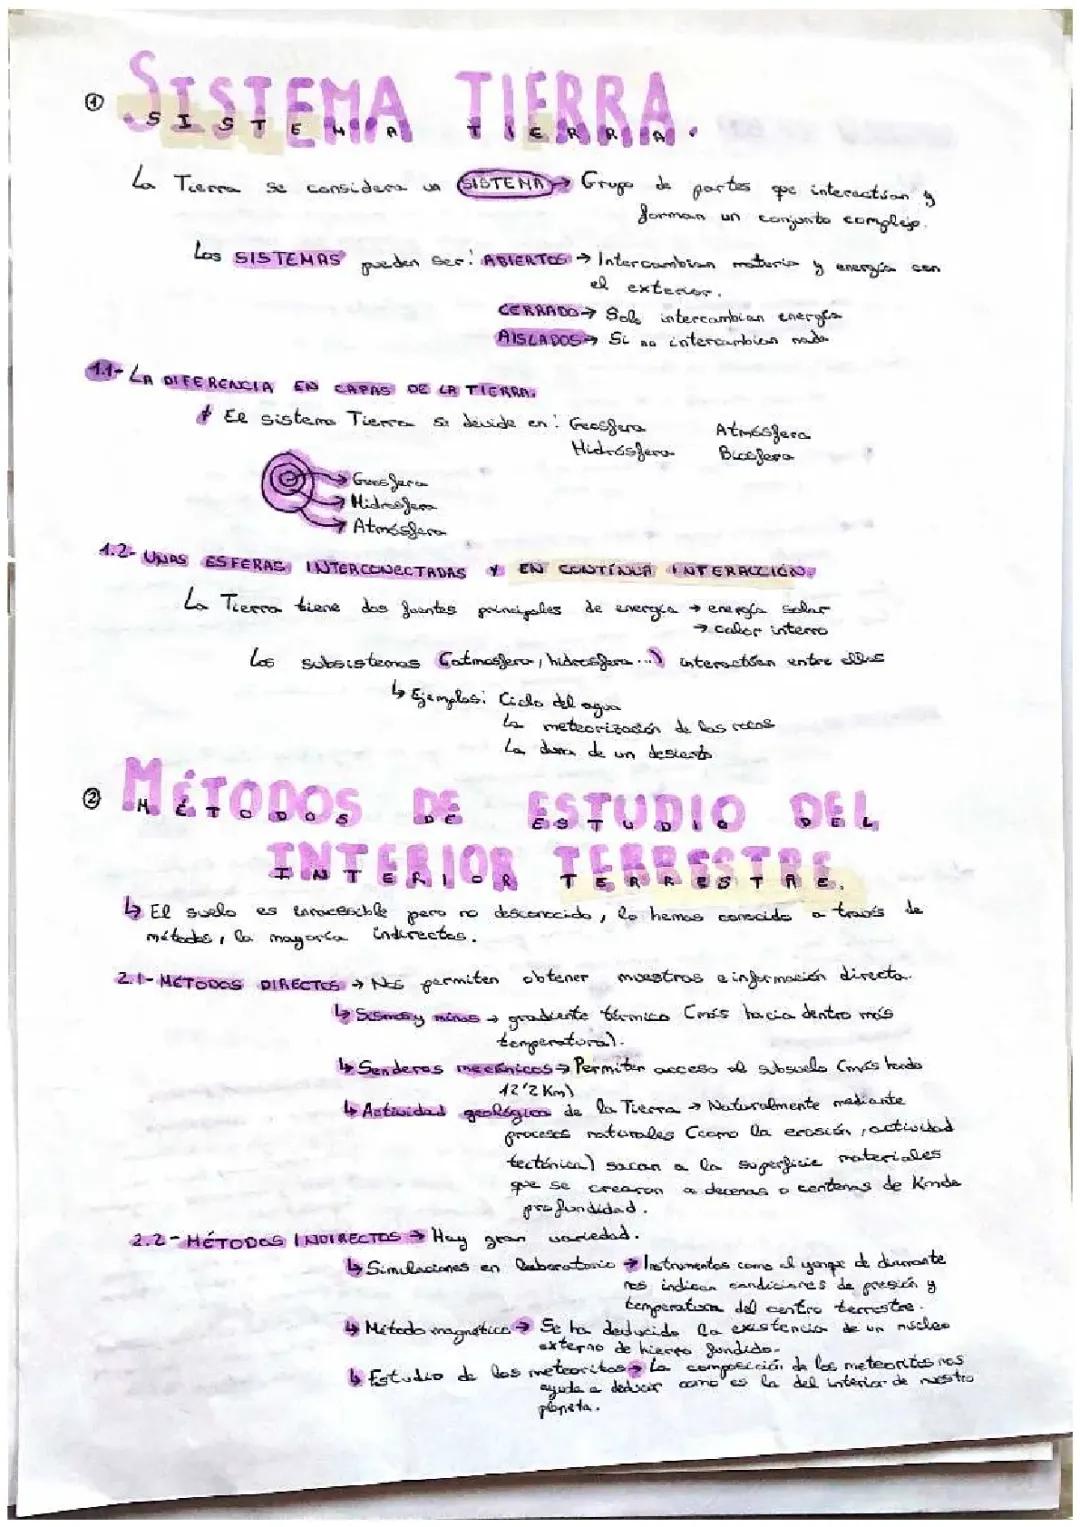 ① SISTEMA TIERRA.
La Tierra se considera un SISTEMA → Grupo de partes que interactúan y
forman un conjunto complejo.
Los SISTEMAS pueden ser: ABIERTOS → Intercambian materia y energía con
el exterior.
CERRADO → Solo intercambian energía
AISLADOS → Si no intercambian nada
1.1- LA DIFERENCIA EN CAPAS DE LA TIERRA.
El sistema Tierra se devide en: Geosfera Atmósfera
Hidrósfera Biosfera
→ Geosfera
→ Hidrosfera
→ Atmósfera
1.2- UNAS ESFERAS INTERCONECTADAS Y EN CONTÍNUA INTERACCIÓN.
La Tierra tiene dos fuentes principales de energía → energía solar
→ calor interno
Los subsistemas (atmosfera, hidrosfera...) interactúan entre ellos
↳ Ejemplos: Ciclo del agua
La meteorización de las rocas
La duna de un desierto
② MÉTODOS DE ESTUDIO DEL
INTERIOR TERRESTRE.
↳ El suelo es inaccesible pero no desconocido, lo hemos conocido a través de
métodos, la mayoría indirectos.
2.1- MÉTODOS DIRECTOS → Nos permiten obtener muestras e información directa.
↳ y minas → gradiente térmico (más hacia dentro más
temperatura).
↳ Senderos mecánicos → Permiten acceso al subsuelo (más hondo
12'2 Km)
↳ Actividad geológica de la Tierra → Naturalmente mediante
procesos naturales (como la erosión, actividad
tectónica) sacan a la superficie materiales
que se crearon a decenas o centenas de Km de
profundidad.
2.2- MÉTODOS INDIRECTOS → Hay gran variedad.
↳ Simulaciones en laboratorio → Instrumentos como el yunque de diamante
nos indican condiciones de presión y
temperatura del centro terrestre.
↳ Método magnético → Se ha deducido la existencia de un núcleo
externo de hierro fundido.
↳ Estudio de los meteoritos → La composición de los meteoritos nos
ayuda a deducir como es la del interior de nuestro
planeta.